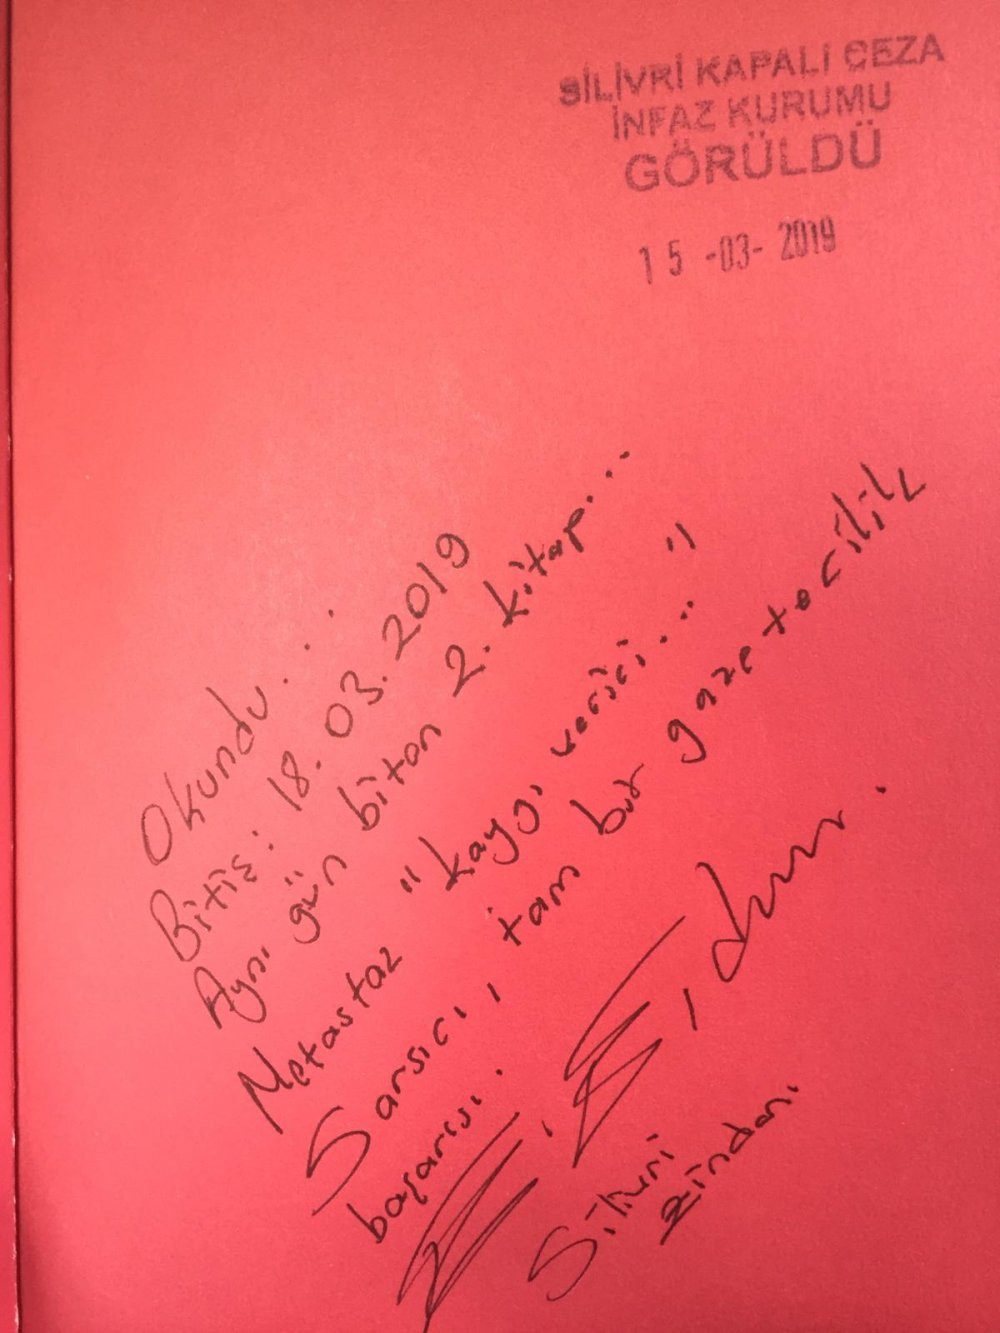 SİLİVRİ KAPALI CEZA
İNFAZ KURUMU
GÖRÜLDÜ
15 -03- 2019
Okundu...
Bitiş: 18.03.2019
Aynı gün biten 2. kitap...
Metastaz "kaygı verici..."
Sarsıcı, tam bir gazetecilik
başarısı.
Silivri
zindanı